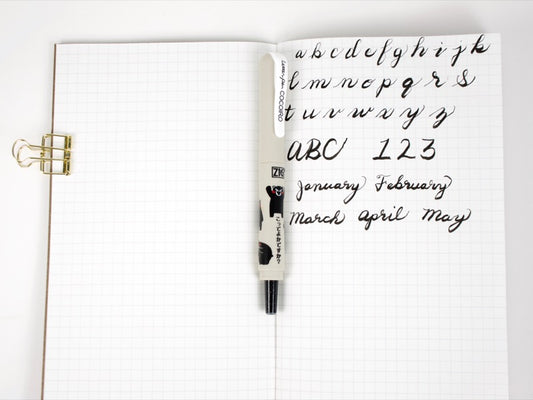 a b c d e f g h i j k
l m n o p q r s
t u v w x y z
ABC 123
January February
March April May
COCOIRO